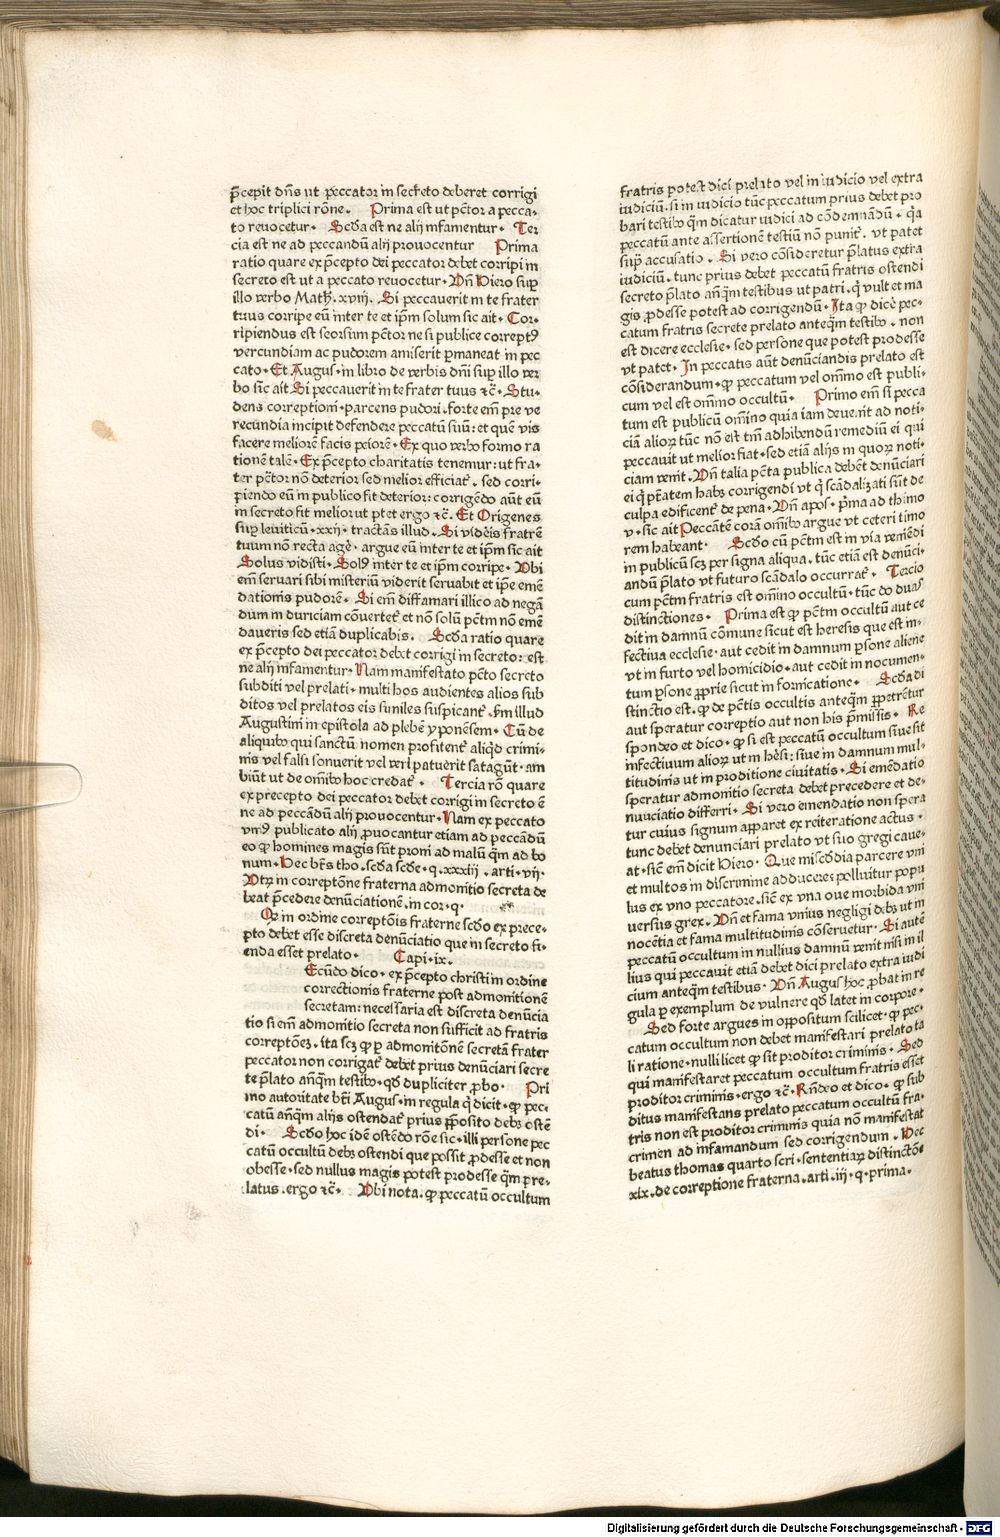 p̄cepit dn̄s ut peccator in secreto deberet corrigi
et hoc triplici rōne. Prima est ut pc̄tor a pecca-
to reuocetur. Scd̄a est ne alij infamentur. Ter
cia est ne ad peccandū alij prouocentur Prima
ratio quare ex p̄cepto dei peccator debet corripi in
secreto est ut a peccato reuocetur. Vn̄ Hiero sup
illo verbo Math. xviij. Si peccauerit in te frater
tuus corripe eū inter te et ip̄m solum sic ait. Cor-
ripiendus est seorsum pc̄tor ne si publice correptꝰ
verecundiam ac pudorem amiserit p̱maneat in pec
cato. Et Augus. in libro de verbis dn̄i sup illo ver
bo sic̄ ait Si peccauerit in te frater tuus ⁊c̄. Stu-
dens correptioni. parcens pudori. forte em̄ pre ve
recundia incipit defendere peccatū suū: et quē vis
facere meliorē facis peiorē. Ex quo verbo formo ra
tionē talē. Ex p̄cepto charitatis tenemur: ut fra-
ter pc̄tor nō deterior sed melior efficiat᷑. sed corri-
piendo eū in publico fit deterior: corrigēdo aūt eū
in secreto fit melior ut ptet ergo ⁊c̄. Et Origenes
sup leuiticū. xxij. tractās illud. Si videris fratrē
tuum nō recta agē. argue eū inter te et ip̄m sic ait
Solus vidisti. Solꝰ inter te et ip̄m corripe. Vbi
em̄ seruari sibi misteriū viderit seruabit et ip̄e emē
dationis pudorē. Si em̄ diffamari illico ad negā
dum in duriciam cōuertet᷑ et nō solū pc̄tm nō emē
daueris sed etiā duplicabis. Scd̄a ratio quare
ex p̄cepto dei peccator debet corrigi in secreto: est
ne alij infamentur. Nam manifestato pc̄to secreto
subditi vel prelati. multi hos audientes alios sub
ditos vel prelatos eis similes suspicant᷑. s̄m illud
Augustini in epistola ad plebē yponēsem. Cū de
aliquibꝰ qui sanctū nomen profitent᷑ aliqd̄ crimi-
nis vel falsi sonuerit vel veri patuerit satagūt. am
biūt ut de om̄ibꝰ hoc credat᷑. Tercia rō quare
ex precepto dei peccator debet corrigi in secreto ē
ne ad peccādū alij prouocentur. Nam ex peccato
vniꝰ publicato alij p̱uocantur etiam ad peccādū
eo ꝙ homines magis sūt proni ad malū q̄m ad bo
num. Hec br̄s tho. scd̄a scd̄e. q. xxxiij. arti. vij.
Vtꝝ in correptōne fraterna admonitio secreta de
beat p̄cedere denūciationē. in cor. q.
Qꝛ in ordine correptōis fraterne scd̄o ex prece-
pto debet esse discreta denūciatio que in secreto fi-
enda esset prelato. Capi. ix.
Ecūdo dico. ex p̄cepto christi in ordine
correctionis fraterne post admonitionē
secretam: necessaria est discreta denūcia
tio si em̄ admonitio secreta non sufficit ad fratris
correptōeꝫ. ita scꝫ ꝙ p̱ admonitōnē secretā frater
peccator non corrigat᷑ debet prius denūciari secre
te p̄lato an̄q̄m testibꝰ. qd̄ dupliciter p̱bo. Pri
mo autoritate bt̄i Augus. in regula q̄ dicit. ꝙ pec-
catū an̄q̄m alijs ostendat᷑ prius p̄posito debꝫ ostē
di. Scd̄o hoc idē ostēdo rōe sic. illi persone pec
catū occultū debꝫ ostendi que possit p̱desse et non
obesse. sed nullus magis potest prodesse q̄m pre-
latus. ergo ⁊c̄. Vbi nota. ꝙ peccatū occultum
fratris potest dici prelato vel in iudicio vel extra
iudiciū. si in iudicio tūc peccatum prius debet pro
bari testibꝰ q̄m dicatur iudici ad cōdemnādū. q̄a
peccatū ante assertionē testiū nō punit᷑. vt patet
sup̄ accusatio. Si vero cōsideretur p̄latus extra
iudiciū. tunc prius debet peccatū fratris ostendi
secreto p̄lato an̄q̄m testibus ut patri. q̄ vult et ma
gis p̱desse potest ad corrigendū. Ita ꝙ dicē pec-
catum fratris secrete prelato anteq̄m testibꝰ. non
est dicere ecclesie. sed persone que potest prodesse
vt patet. In peccatis aūt denūciandis prelato est
cōsiderandum. ꝙ peccatum vel omnino est publi-
cum vel est omnino occultū. Primo em̄ si pecca
tum est publicū om̄ino quia iam deuenit ad noti-
ciā alioꝝ tūc nō est tm̄ adhibendū remediū ei qui
peccauit ut melior fiat. sed etiā alijs in quoꝝ noti-
ciam venit. Vn̄ talia pc̄ta publica debēt denūciari
ei q̄ p̄tatem habꝫ corrigendi vt q̄ scādalizati sūt de
culpa edificent᷑ de pena. Vn̄ apos. p̄ma ad thimo
v. sic ait Peccātē corā om̄ibꝰ argue vt ceteri timo
rem habeant. Scd̄o cū pc̄tm est in via veniēdi
in publicū scꝫ per signa aliqua. tūc etiā est denūci-
andū p̄lato vt futuro scādalo occurrat᷑. Tercio
cum pc̄tm fratris est om̄ino occultū. tūc do duas
distinctiones. Prima est ꝙ pc̄tm occultū aut ce
dit in damnū cōmune sicut est heresis que est in-
fectiua ecclesie. aut cedit in damnum p̱sone aliene
vt in furto vel homicidio. aut cedit in nocumen-
tum p̱sone p̱prie sicut in fornicatione. Scd̄a di
stinctio est. ꝙ de pc̄tis occultis anteq̄m p̱petrētur
aut speratur correptio aut non his p̄missis. Re
spondeo et dico. ꝙ si est peccatū occultum siue sit
infectiuum alioꝝ ut in hēsi: siue in damnum mul-
titudinis ut in proditione ciuitatis. Si emēdatio
speratur admonitio secreta debet precedere et de-
nunciatio differri. Si vero emendatio non spera
tur cuius signum apparet ex reiteratione actus.
tunc debet denunciari prelato vt suo gregi caue-
at. sic̄ em̄ dicit Hiero. Que mis̄cdia parcere vni
et multos in discrimine adducere: polluitur popu
lus ex vno peccatore. sic̄ ex vna oue morbida vni
uersus grex. Vn̄ et fama vnius negligi debꝫ ut in
nocētia et fama multitudinis cōseruetur. Si autē
peccatū occultum in nullius damnū venit nisi in il
lius qui peccauit etiā debet dici prelato extra iudi
cium anteq̄m testibus. Vn̄ Augus hoc p̱bat in re
gula p̱ exemplum de vulnere qd̄ latet in corpore.
Sed forte argues in oppositum scilicet. ꝙ pec-
catum occultum non debet manifestari prelato ta
li ratione. nulli licet ꝙ sit proditor criminis. Sed
qui manifestaret peccatum occultum fratris esset
proditor criminis. ergo ⁊c̄. Rn̄deo et dico. ꝙ sub
ditus manifestans prelato peccatum occultū fra-
tris non est proditor criminis quia nō manifestat
crimen ad infamandum sed corrigendum. Hec
beatus thomas quarto scri. sententiaꝝ distinctōe
xix. de correptione fraterna. arti. iij. q. prima.
Digitalisierung gefördert durch die Deutsche Forschungsgemeinschaft - DFG